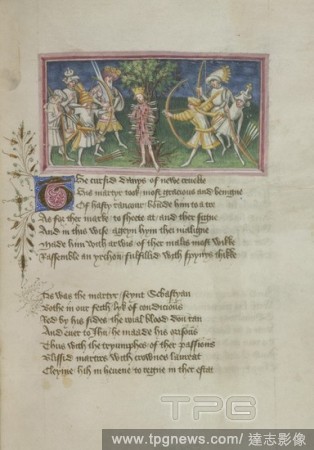 The cursid danys of newe cruelte
This martyr took most gracious and benigne
Of hasty rancour bounde him to a tre
As for ther marke to sheete at and ther signe
And in this wise ageyn hym thei maligne
Made him with arwes of ther malis most wikke
Rassemble an yrchon fulfilled with spynys thikke
As was the martyr seynt Sebastyan
Bothe in our feith lyk of condicioun
Red by his sides the roial blood don ran
And euer to Ihu he maade his orisoun
Thus with the tryumphes of ther passioun
Blissid martires with crownes laureat
Cleyme hih in heuene to regne in ther estat
TPG
www.tpgnews.com/達志影像